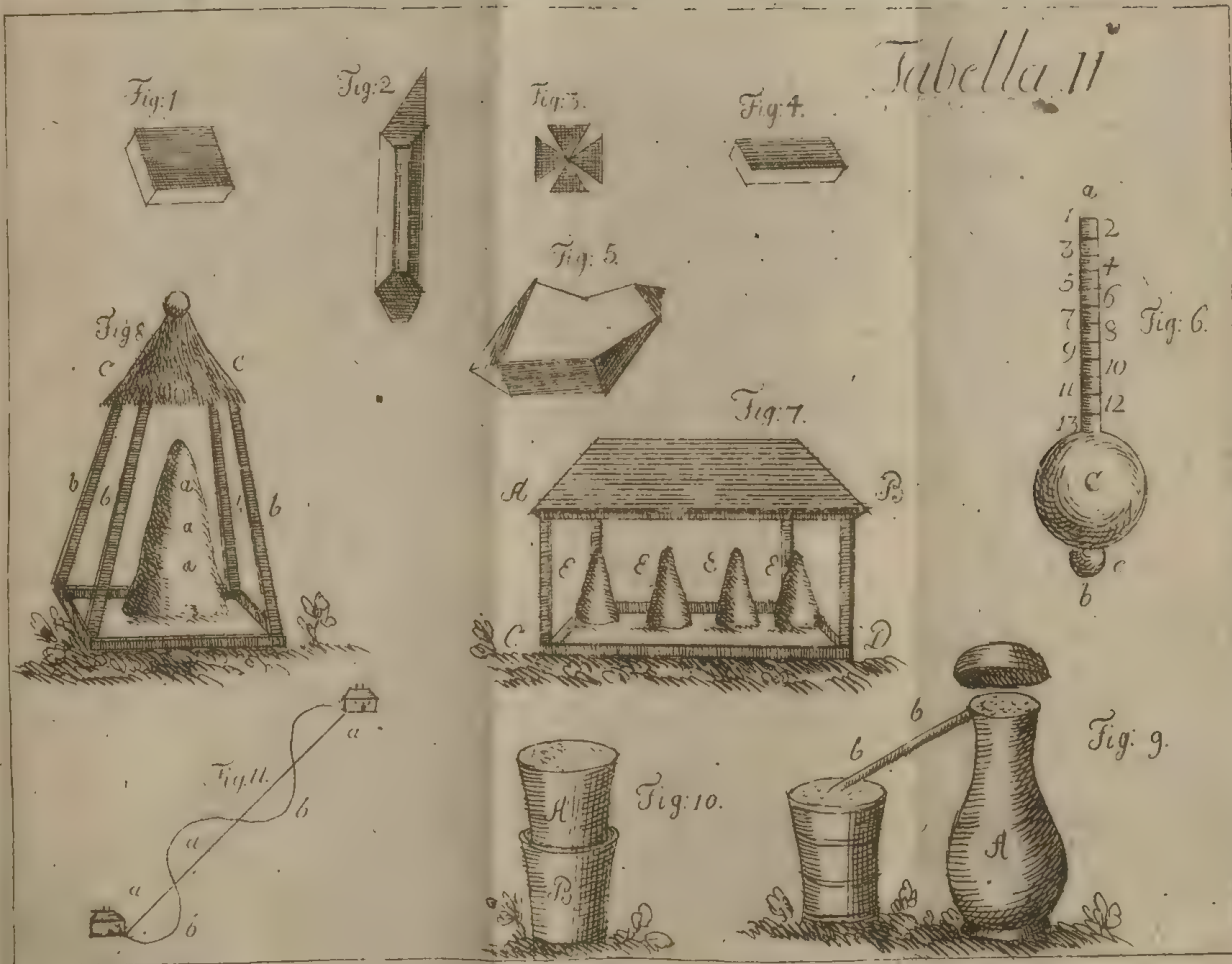 Tabella II
Fig: 1
Fig: 2
Fig: 3.
Fig: 4.
Fig: 5.
a
1 2
3 4
5 6
7 8
9 10
11 12
13
Fig: 6.
C
c
b
Fig 8
C C
b b b
a
a
a
Fig: 7.
A B
E E E E
C D
Fig. 11.
a
b
a
a
b
Fig: 10.
A
B
Fig: 9.
b
b
A